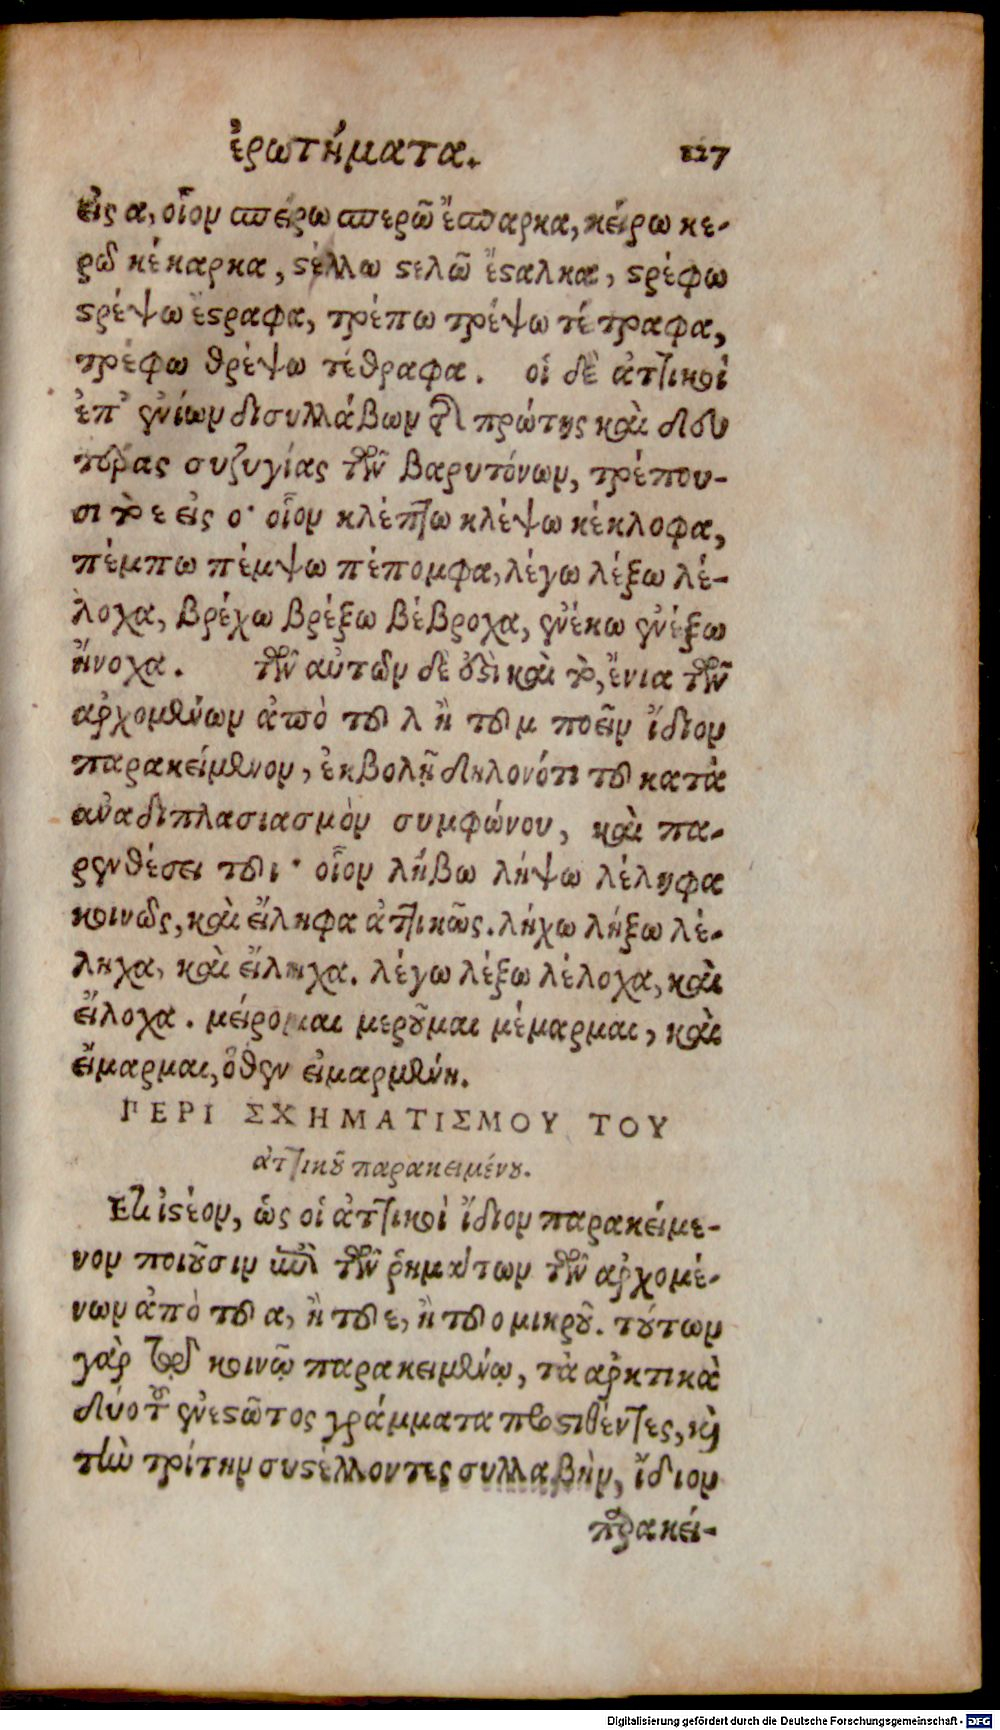 ἐρωτήματα. 127
εἰς α, οἷον σπείρω σπερῶ ἔσπαρκα, κείρω κε-
ρῶ κέκαρκα, στέλλω στελῶ ἔσταλκα, στρέφω
στρέψω ἔστραφα, τρέπω τρέψω τέτραφα,
τρέφω θρέψω τέθραφα. οἱ δὲ ἀττικοὶ
ἐπ' ἐνίων δισυλλάβων τῆς πρώτης καὶ δευ
τέρας συζυγίας τῶν βαρυτόνων, τρέπου-
σι τὸ ε εἰς ο· οἷον κλέπτω κλέψω κέκλοφα,
πέμπω πέμψω πέπομφα, λέγω λέξω λέ-
λοχα, βρέχω βρέξω βέβροχα, ἐνέκω ἐνέξω
ἤνοχα. τῶν αὐτῶν δὲ ἐστὶ καὶ τὸ, ἔνια τῶν
ἀρχομένων ἀπὸ τοῦ λ ἢ τοῦ μ ποεῖν ἴδιον
παρακείμενον, ἐκβολῇ δηλονότι τοῦ κατὰ
ἀναδιπλασιασμὸν συμφώνου, καὶ πα-
ρενθέσει τοῦ ι· οἷον λήβω λήψω λέληφα
κοινῶς, καὶ εἴληφα ἀττικῶς. λήχω λήξω λέ-
ληχα, καὶ εἴληχα. λέγω λέξω λέλοχα, καὶ
εἴλοχα. μείρομαι μεροῦμαι μέμαρμαι, καὶ
εἵμαρμαι, ὅθεν εἱμαρμένη.
ΠΕΡΙ ΣΧΗΜΑΤΙΣΜΟΥ ΤΟΥ
ἀττικοῦ παρακειμένου.
Ἔτι ἰστέον, ὡς οἱ ἀττικοὶ ἴδιον παρακείμε-
νον ποιοῦσιν ἐπὶ τῶν ῥημάτων τῶν ἀρχομέ-
νων ἀπὸ τοῦ α, ἢ τοῦ ε, ἢ τοῦ ο μικροῦ. τούτων
γὰρ τῷ κοινῷ παρακειμένῳ, τὰ ἀρκτικὰ
δύο τοῦ ἐνεστῶτος γράμματα προστιθέντες, καὶ
τὴν τρίτην συστέλλοντες συλλαβὴν, ἴδιον
παρακεί-
Digitalisierung gefördert durch die Deutsche Forschungsgemeinschaft - DFG